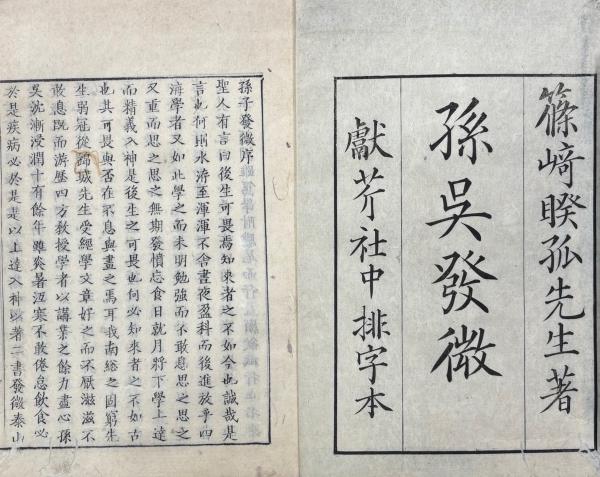 篠﨑暌孤先生著
孫吳發微
獻芥社中 排字本
孫子發微序
聖人有言曰後生可畏焉知來者之不如今也誠哉是
言也何則水洊至渾渾不舍晝夜盈科而後進放乎四
海學者又如此學之而未明勉強而不敢息思之思之
又重而思之思之無期發憤忘食日就月將下學上達
而精義入神是後生之可畏也何必知來者之不如古
也其可畏與否在不息與畫之焉耳我南綌之固窮生
生弱冠從錦城先生受經學文章好之而不厭滋滋不
敢息既而游歷四方教授學者以講業之餘力盡心孫
吳沈漸浸潤十有餘年雖炎暑沍寒不敢倦怠飲食必
於是疾病必於是是以上達入神以著二書發微泰山